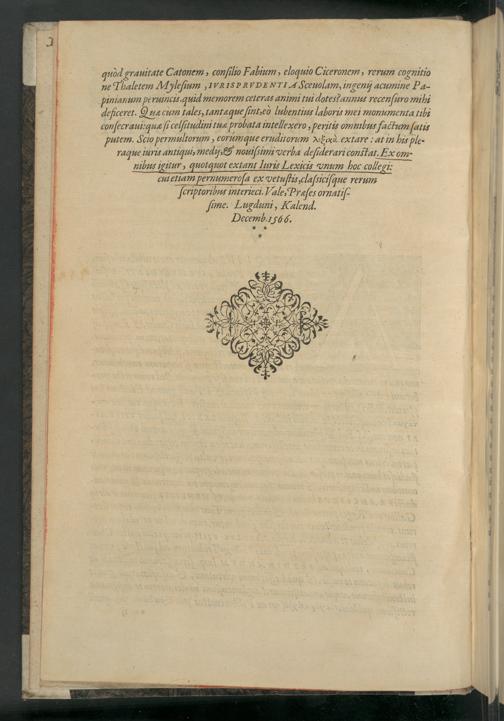 quòd grauitate Catonem, consilio Fabium, eloquio Ciceronem, rerum cognitio
ne Thaletem Mylesium, IVRISPRVDENTIA Sceuolam, ingenij acumine Pa-
pinianum peruincis. quid memorem ceteras animi tui dotes? annus recensuro mihi
deficeret. Quæ cum tales, tantaque sint, eò lubentius laboris mei monumenta tibi
consecraui: quæ si celsitudini tuæ probata intellexero, peritis omnibus factum satis
putem. Scio permultorum, eorumque eruditorum extare: at in his ple-
raque iuris antiqui, medij, & nouissimi verba desiderari constat. Ex om-
nibus igitur, quotquot extant Iuris Lexicis vnum hoc collegi:
cui etiam pernumerosa ex vetustis, classicisque rerum
scriptoribus interieci. Vale, Præses ornatis-
sime. Lugduni, Kalend.
Decemb. 1566.